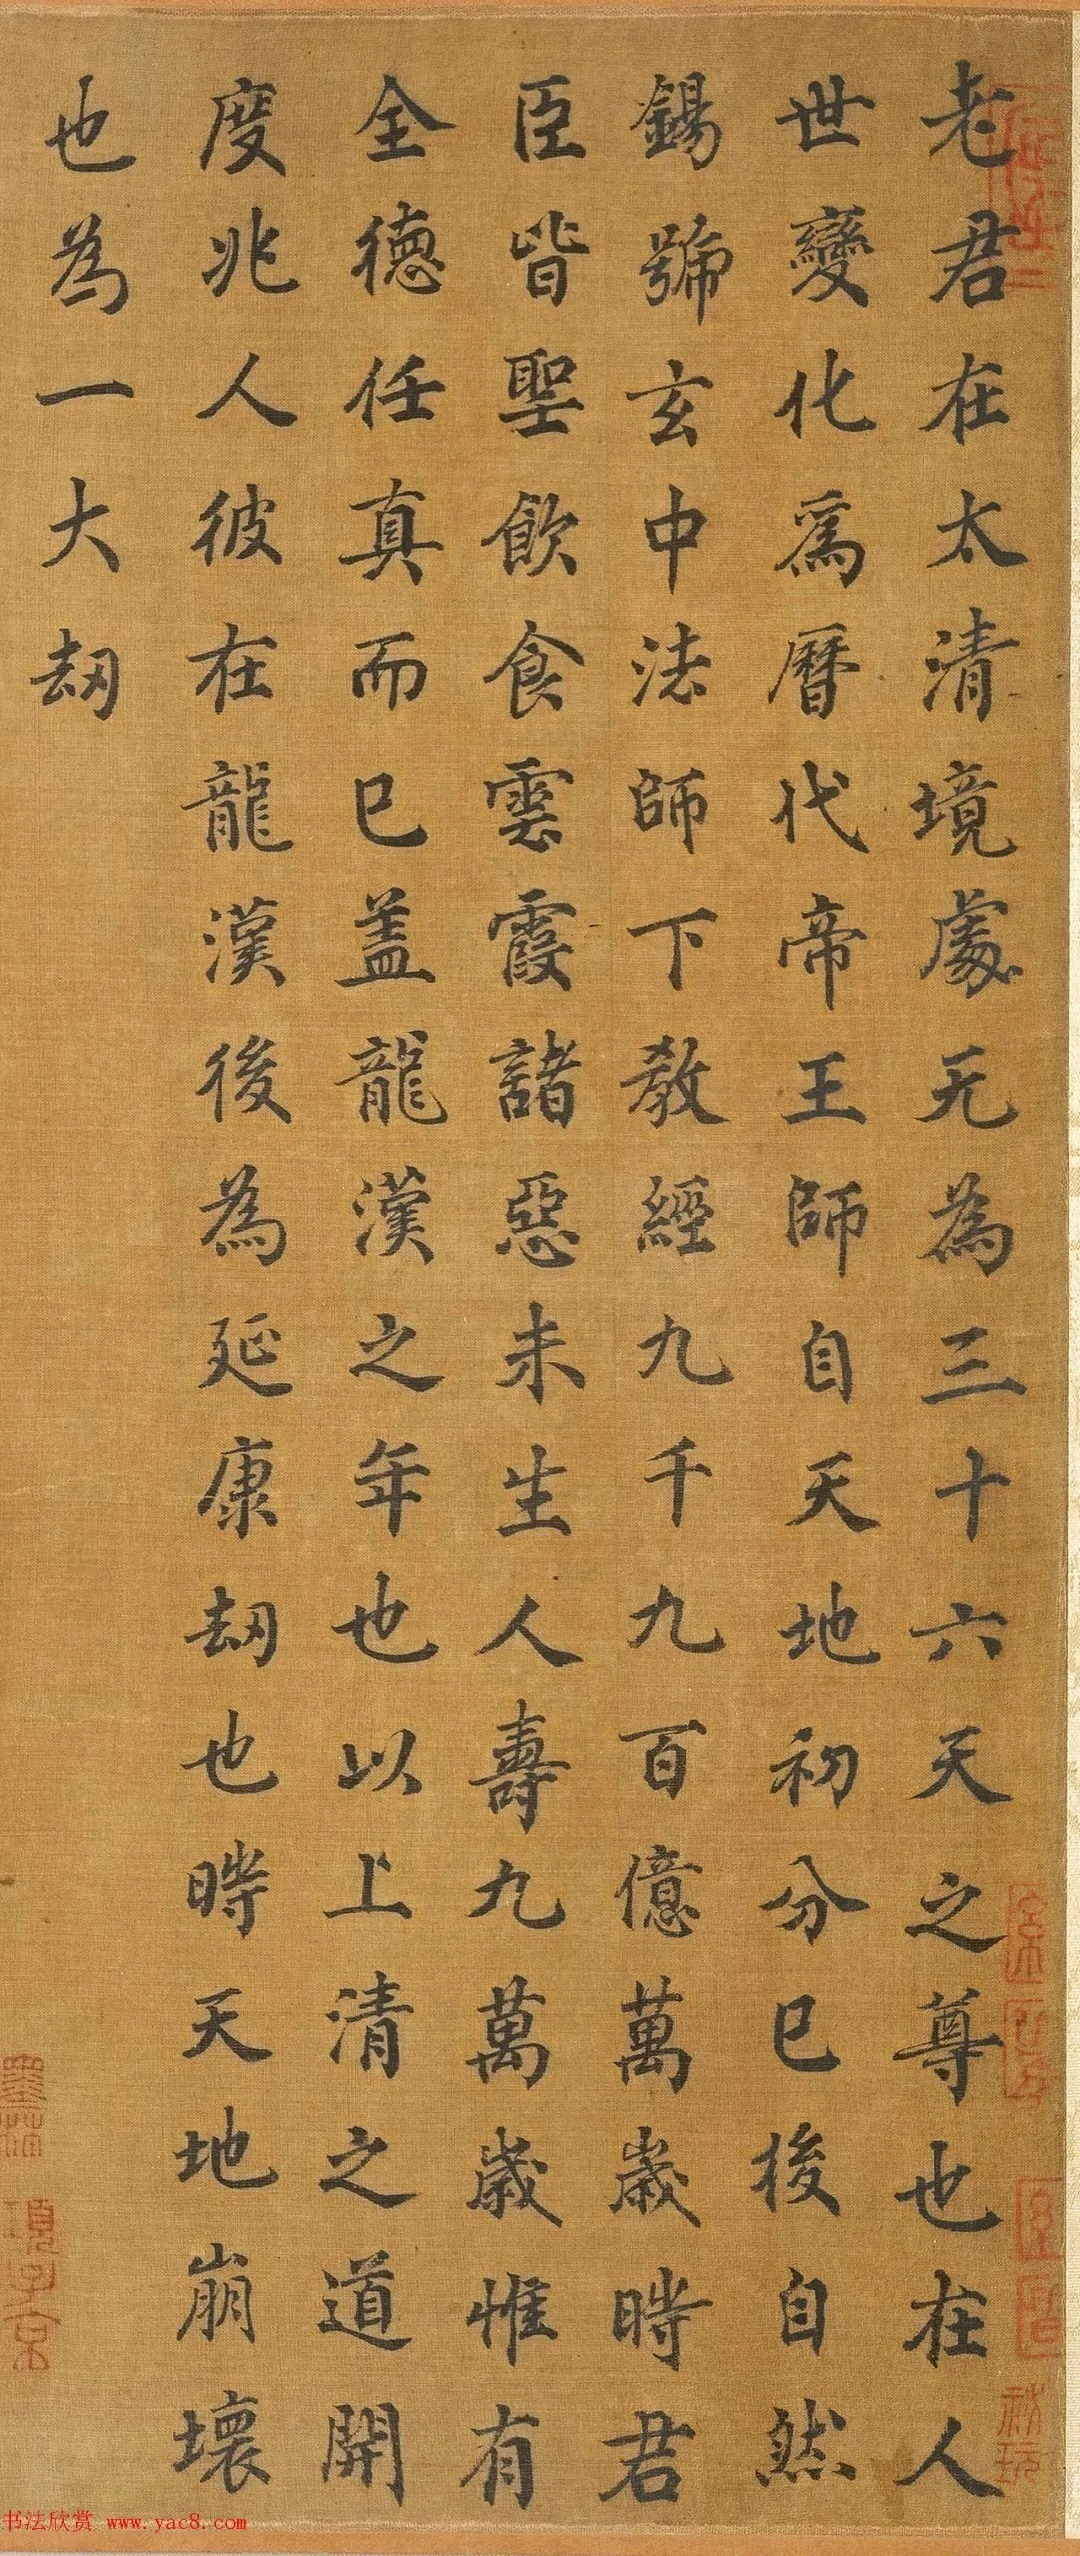 老君在太清境處无為三十六天之尊也在人
世變化爲曆代帝王師自天地初分已後自然
錫號玄中法師下教經九千九百億萬歲時君
臣皆聖飲食雲霞諸惡未生人壽九萬歲惟有
全德任真而已蓋龍漢之年也以上清之道開
度兆人彼在龍漢後為延康劫也時天地崩壞
也為一大劫
項子京
书法欣赏 www.yac8.com